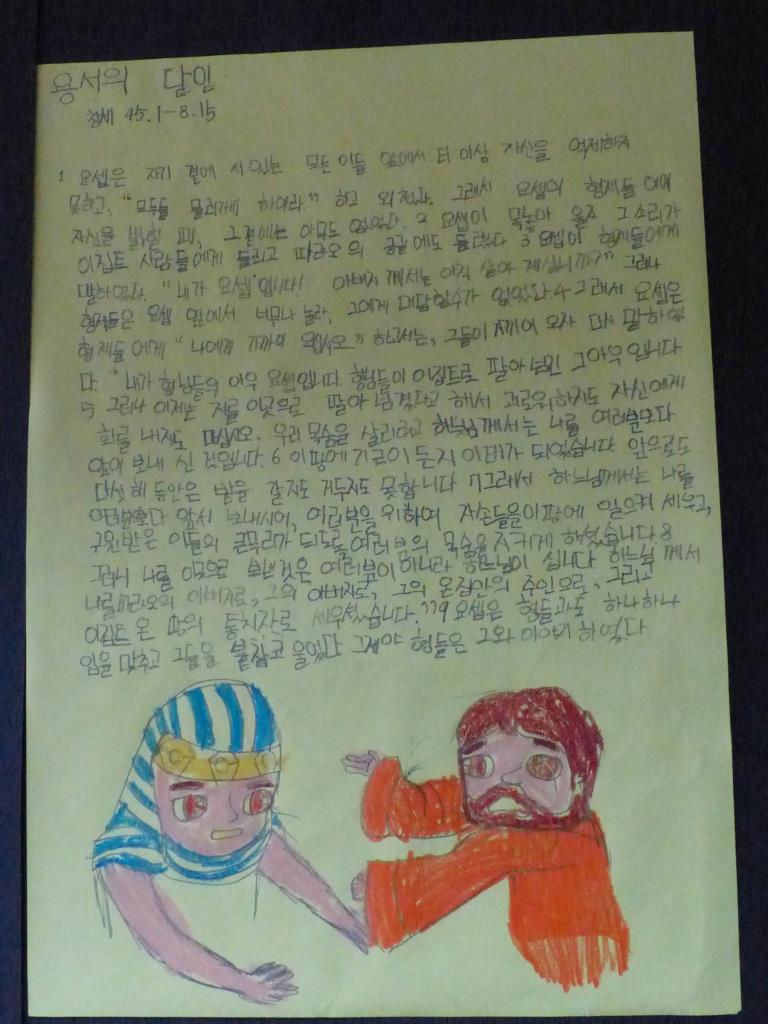 용서의 달인
창세 45.1-8.15
1 요셉은 자기 곁에 서있는 모든 이들 앞에서 더 이상 자신을 억제하지
못하고, "모두들 물러가게 하여라." 하고 외쳤다. 그래서 요셉이 형제들에게
자신을 밝힐 때, 그곁에는 아무도 없었다. 2 요셉이 목놓아 울자 그소리가
이집트 사람들에게 들리고 파라오의 궁궐에도 들렸다 3 요셉이 형제들에게
말하였다. "내가 요셉입니다! 아버지께서는 아직 살아 계십니까?" 그러나
형제들은 요셉 앞에서 너무나 놀라, 그에게 대답할수가 없었다.4 그래서 요셉은
형제들에게 "나에게 가까이 오십시오." 하고서는, 그들이 가까이 오자 다시 말하였
다. "내가 형님들의 아우 요셉입니다. 형님들이 이집트로 팔아넘긴 그아우입니다
5 그러나 이제는 저를 이곳으로 팔아 넘겼다고 해서 괴로워하지도 자신에게
화를 내지도 마십시오. 우리 목숨을 살리려고 하느님께서는 나를 여러분보다
앞서 보내 신 것입니다. 6 이 땅에 기근이 든지 이태가 되었습니다 앞으로도
다섯 해 동안은 밭을 갈지도 거두지도 못합니다 7 그래서 하느님께서는 나를
여러분보다 앞서 보내시어, 여러분을 위하여 자손들을 이땅에 일으켜 세우고,
구원받은 이들의 큰무리가 되도록 여러분의 목숨을 지키게 하셨습니다.8
그러니 나를 이곳으로 보낸것은 여러분이 아니라 하느님이 십니다 하느님께서
나를 파라오의 아버지로, 그의 온집안의 주인으로, 그리고
이집트 온 땅의 통치자로 세우셨습니다." 요셉은 형들과도 하나하나
입을 맞추고 그들을 붙잡고 울었다 그제야 형들은 그와 이야기 하였다